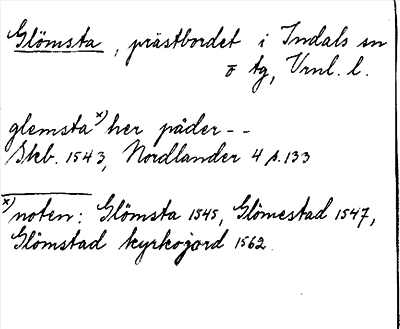 Glömsta, prästbordet i Indals sn
o tg, Vrnl. l.
glemsta x) her påder - -
Skb. 1543, Nordlander 4 s. 133
x) noten: Glömsta 1545, Glömestad 1547,
Glömstad kyrkojord 1562.